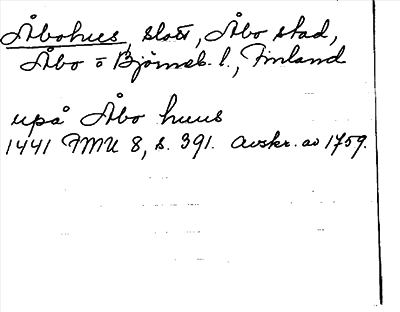 Åbohus, slott, Åbo stad,
Åbo o Björneb. l., Finland
upå Åbo huus
1441 FMU 8, s. 391. Avskr. av 1759.